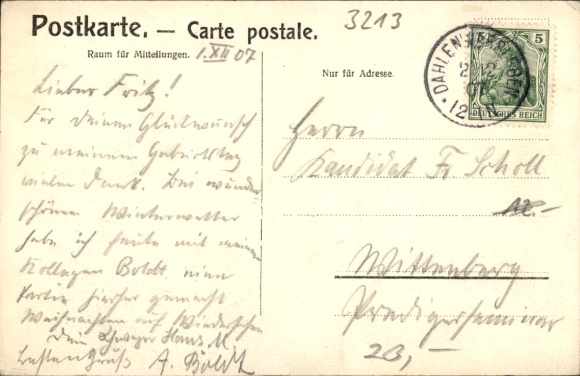 Postkarte. — Carte postale.
3213
Raum für Mitteilungen.
1. XII 07
Nur für Adresse.
DAHLENWARSLEBEN
2 12
07
12-1 N
5
DEUTSCHES REICH
Lieber Fritz!
Für Deinen Glückwunsch
zu meinem Geburtstag
vielen Dank. Bei wunder
schönem Winterwetter
habe ich heute mit meinem
Kollegen Boldt eine
Partie hierher gemacht
Weihnachten auf Wiedersehen
Dein Schwager Hans M.
Besten Gruß A. Boldt
Herrn
Kandidat Fr. Scholl
12.-
Wittenberg
Predigerseminar
2B,-